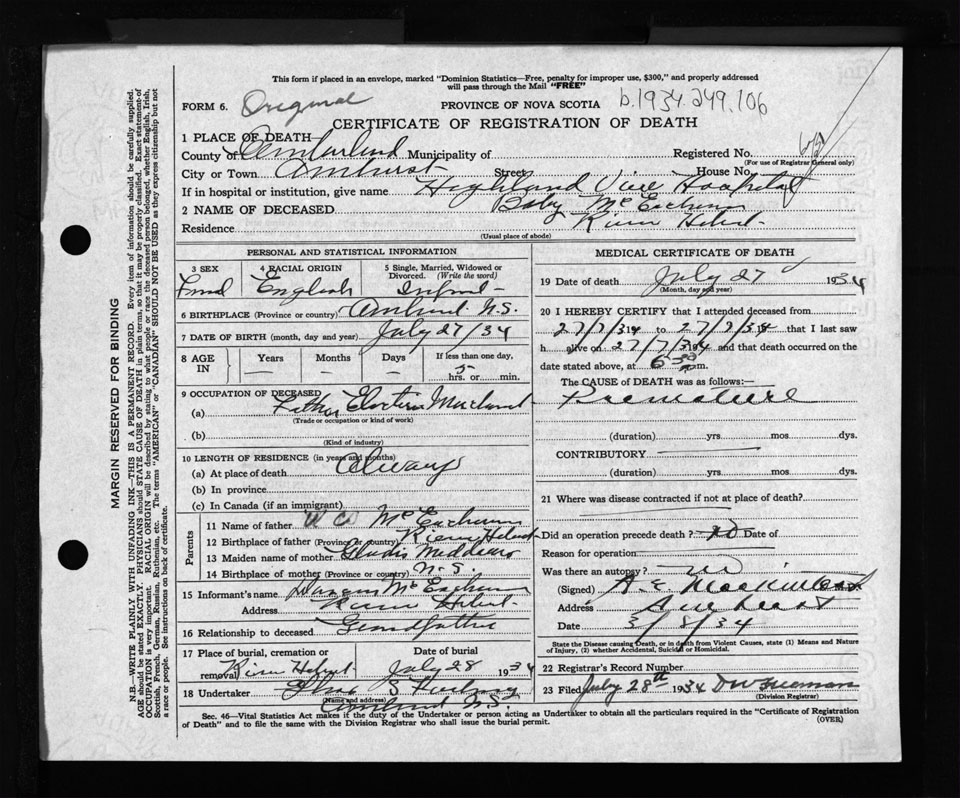 This form if placed in an envelope, marked "Dominion Statistics—Free, penalty for improper use, $300," and properly addressed
will pass through the Mail "FREE"
FORM 6. Original PROVINCE OF NOVA SCOTIA b.1934.249.106
CERTIFICATE OF REGISTRATION OF DEATH
1 PLACE OF DEATH
County of Cumberland Municipality of Registered No.
(For use of Registrar General only)
City or Town Amherst Street House No.
If in hospital or institution, give name Highland View Hospital
2 NAME OF DECEASED Baby McEachern
Residence River Hebert
(Usual place of abode)
PERSONAL AND STATISTICAL INFORMATION
3 SEX 4 RACIAL ORIGIN 5 Single, Married, Widowed or
Divorced. (Write the word)
English Infant
6 BIRTHPLACE (Province or country) Amherst N.S.
7 DATE OF BIRTH (month, day and year) July 27/34
8 AGE IN Years Months Days If less than one day,
5 hrs. or min.
9 OCCUPATION OF DECEASED
(a) Father
(Trade or occupation or kind of work)
(b)
(Kind of industry)
10 LENGTH OF RESIDENCE (in years and months)
(a) At place of death Always
(b) In province
(c) In Canada (if an immigrant)
Parents
11 Name of father McEachern
12 Birthplace of father (Province or country) River Hebert
13 Maiden name of mother
14 Birthplace of mother (Province or country) N.S.
15 Informant's name McEachern
Address River Hebert
16 Relationship to deceased Grandfather
17 Place of burial, cremation or Date of burial
removal River Hebert July 28 1934
18 Undertaker
(Name and address)
Amherst N.S.
MEDICAL CERTIFICATE OF DEATH
19 Date of death July 27 1934
(Month, day and year)
20 I HEREBY CERTIFY that I attended deceased from
27/7/34 to 27/7/34 that I last saw
h alive on 27/7/34 and that death occurred on the
date stated above, at 6 30 m.
The CAUSE OF DEATH was as follows:—
Premature
(duration) yrs mos dys.
CONTRIBUTORY
(duration) yrs mos dys.
21 Where was disease contracted if not at place of death?
Did an operation precede death? no Date of
Reason for operation
Was there an autopsy? no
(Signed)
Address Amherst
Date 3/8/34
State the Disease causing Death, or in death from Violent Causes, state (1) Means and Nature
of Injury, (2) whether Accidental, Suicidal or Homicidal.
22 Registrar's Record Number
23 Filed July 28th 1934
(Division Registrar)
Sec. 46—Vital Statistics Act makes it the duty of the Undertaker or person acting as Undertaker to obtain all the particulars required in the "Certificate of Registration
of Death" and to file the same with the Division Registrar who shall issue the burial permit. (OVER)
MARGIN RESERVED FOR BINDING
N.B.—WRITE PLAINLY WITH UNFADING INK—THIS IS A PERMANENT RECORD. Every item of information should be carefully supplied.
AGE should be stated EXACTLY. PHYSICIANS should STATE CAUSE OF DEATH in plain terms, so that it may be properly classified. Exact statement of
OCCUPATION is very important. RACIAL ORIGIN will be described by stating to what people or race the deceased person belonged, whether English, Irish,
Scottish, French, German, Russian, Ruthenian, etc. The terms "AMERICAN" or "CANADIAN" SHOULD NOT BE USED as they express citizenship but not
a race or people. See instructions on back of certificate.